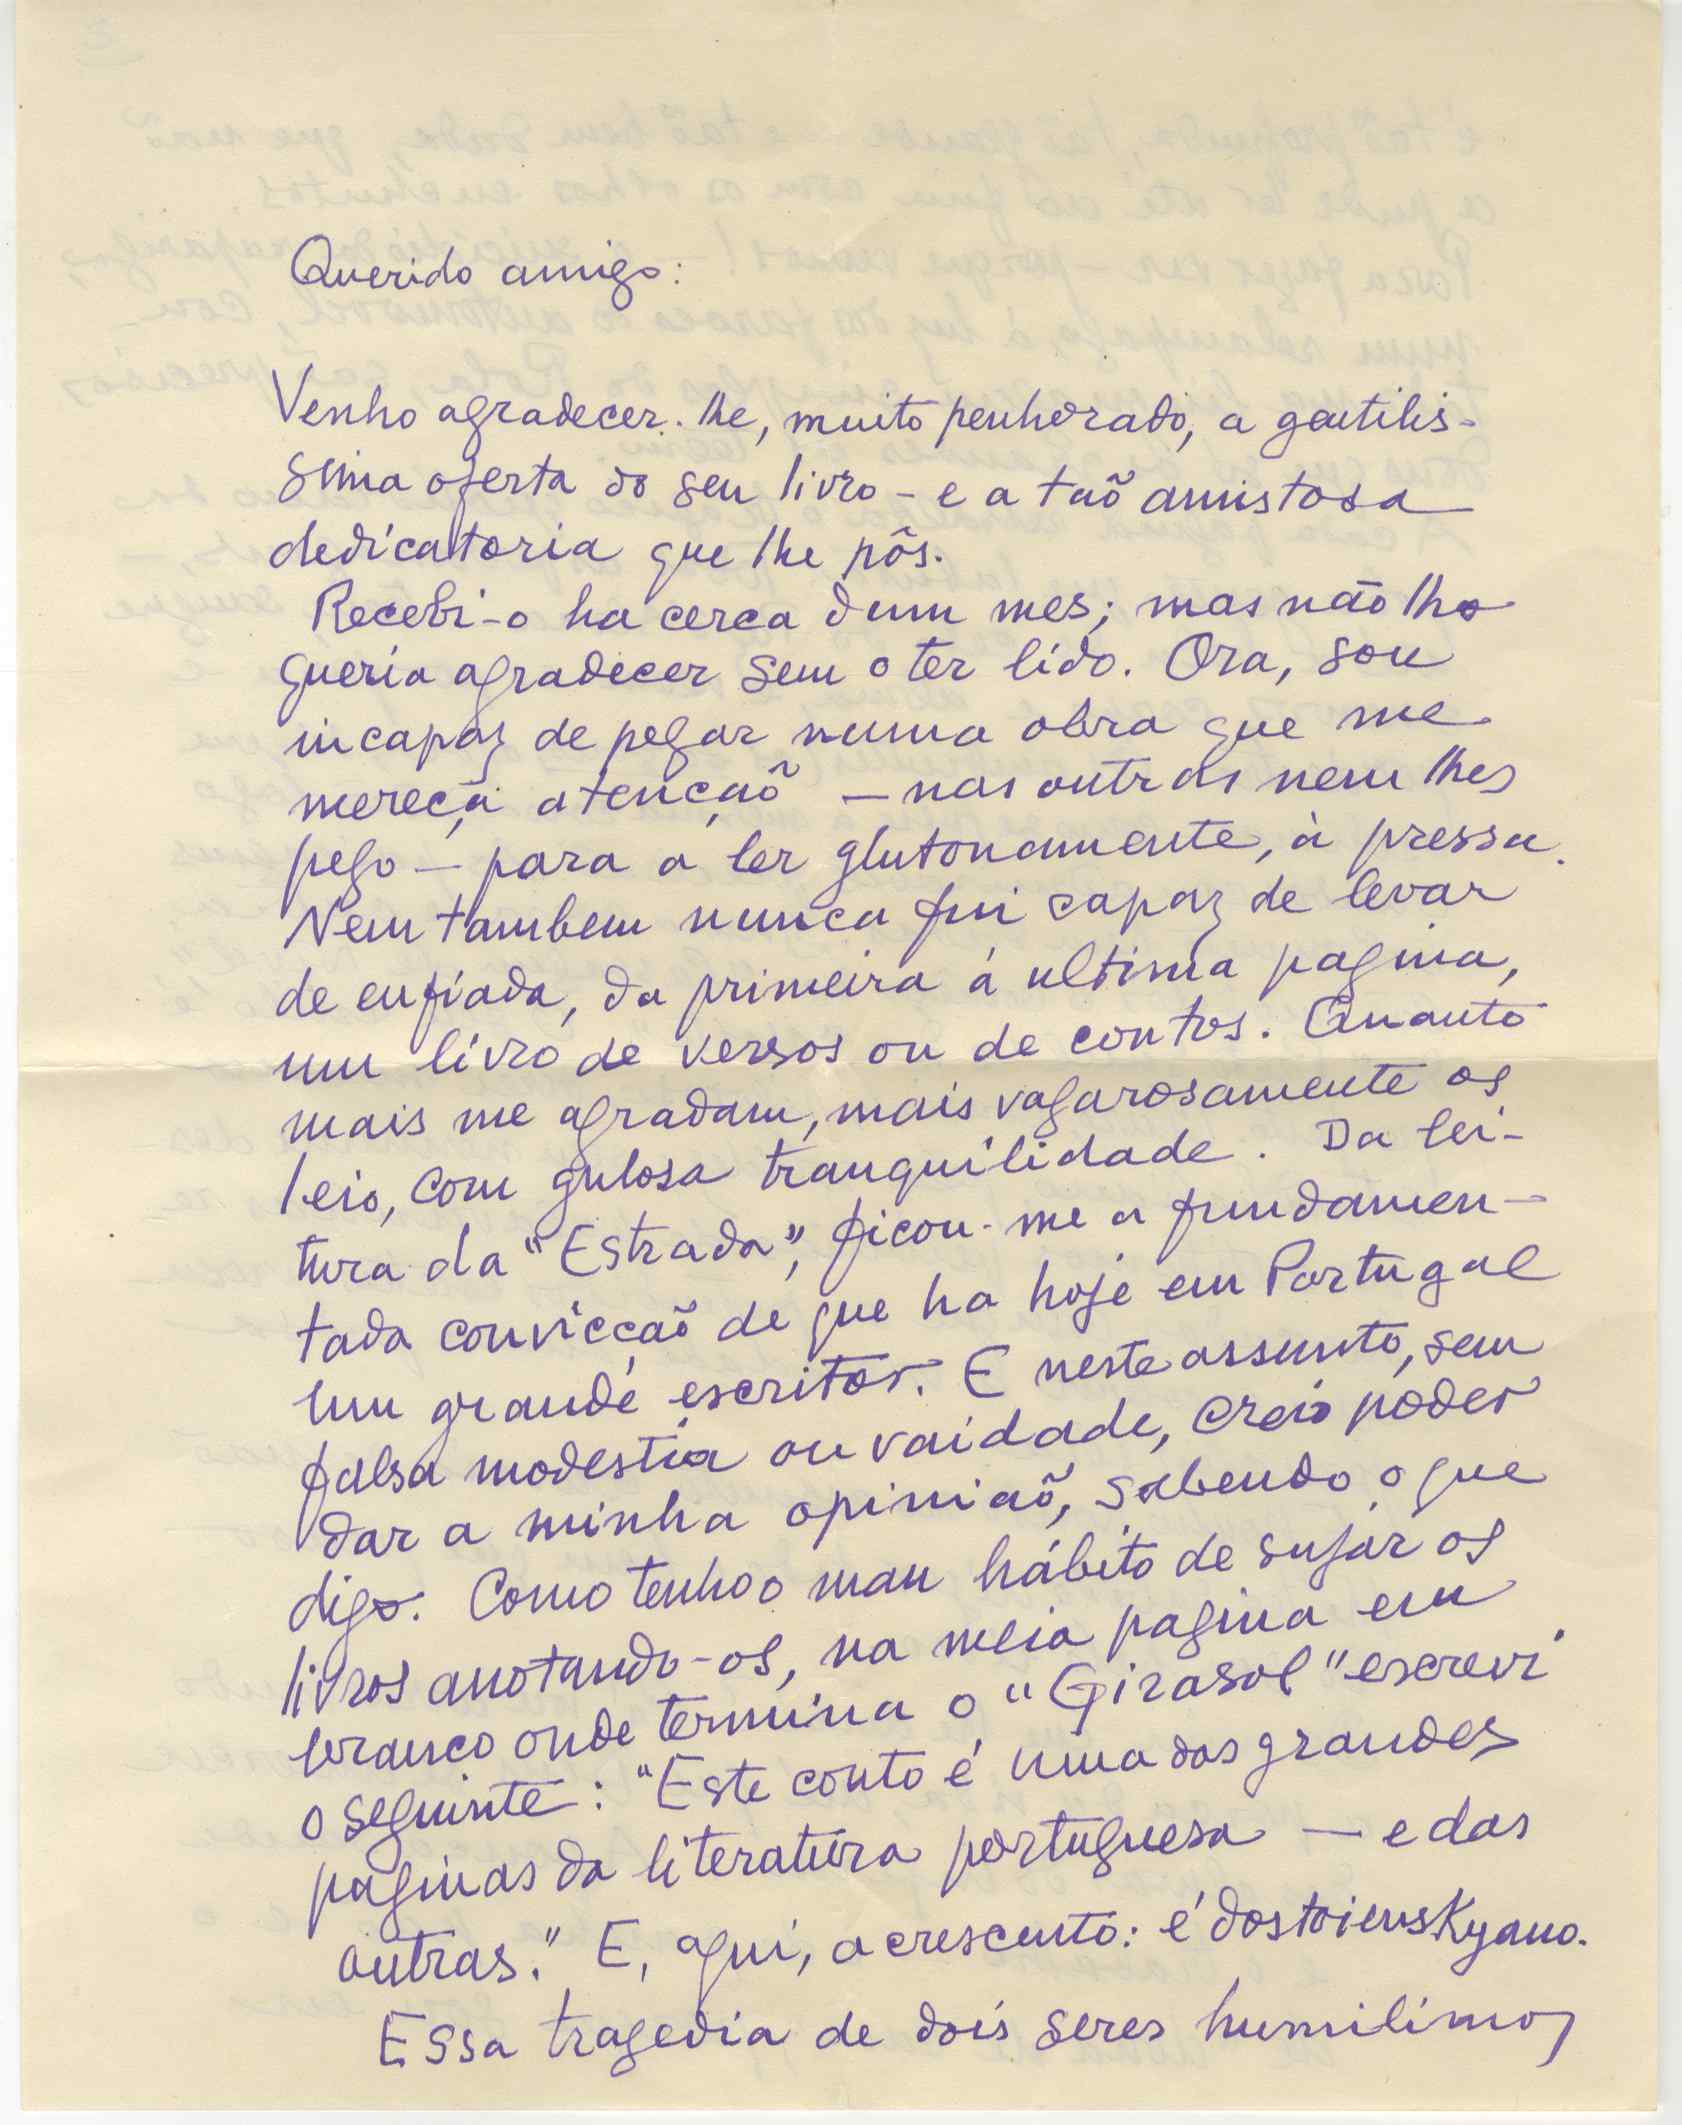 Querido amigo:
Venho agradecer-lhe, muito penhorado, a gentilis-
sima oferta do seu livro - e a taõ amistosa
dedicatoria que lhe pôs.
Recebi-o ha cerca dum mes; mas não lho
queria agradecer sem o ter lido. Ora, sou
incapaz de pegar numa obra que me
mereça atençaõ — nas outras nem lhes
pego — para a ler glutonamente, à pressa.
Nem tambem nunca fui capaz de levar
de enfiada, da primeira á ultima pagina,
um livro de versos ou de contos. Quanto
mais me agradam, mais vagarosamente os
leio, com gulosa tranquilidade. Da lei-
tura da "Estrada", ficou-me a fundamen-
tada convicçaõ de que ha hoje em Portugal
um grande escritor. E neste assunto, sem
falsa modestia ou vaidade, creio poder
dar a minha opiniaõ, sabendo o que
digo. Como tenho o mau hábito de sujar os
livros anotando-os, na meia pagina em
branco onde termina o "Girasol" escrevi
o seguinte: "Este conto é uma das grandes
paginas da literatura portuguesa — e das
outras." E, aqui, acrescento: é dostoievskyano.
Essa tragedia de dois seres humilimos